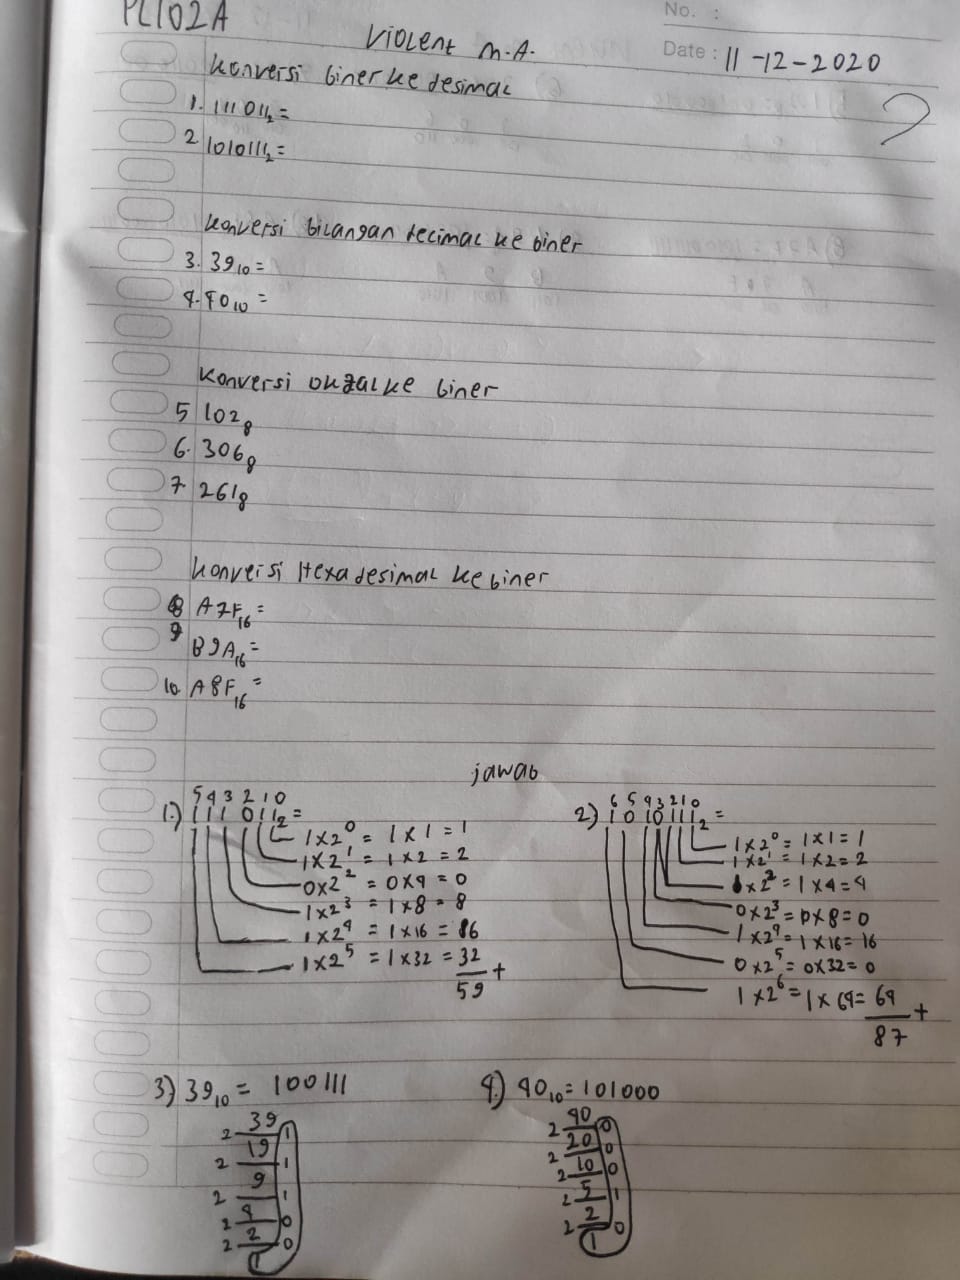 PLI02A
No. :
Violent M.A.
Date : 11-12-2020
Konversi biner ke desimal
1. 111011₂ =
2 1010111₂ =
Konversi bilangan decimal ke biner
3. 39₁₀ =
4. 40₁₀ =
Konversi oktal ke biner
5 102₈
6. 306₈
7. 261₈
Konversi Hexadesimal ke biner
8 A7F₁₆ =
9 B9A₁₆ =
10. A8F₁₆ =
jawab
5 4 3 2 1 0
1.) 111011₂ =
1 x 2⁰ = 1 x 1 = 1
1 x 2¹ = 1 x 2 = 2
0 x 2² = 0 x 4 = 0
1 x 2³ = 1 x 8 = 8
1 x 2⁴ = 1 x 16 = 16
1 x 2⁵ = 1 x 32 = 32 +
59
6 5 4 3 2 1 0
2) 1010111₂ =
1 x 2⁰ = 1 x 1 = 1
1 x 2¹ = 1 x 2 = 2
1 x 2² = 1 x 4 = 4
0 x 2³ = 0 x 8 = 0
1 x 2⁴ = 1 x 16 = 16
0 x 2⁵ = 0 x 32 = 0
1 x 2⁶ = 1 x 64 = 64 +
87
3) 39₁₀ = 100111
39
2 19 1
2 9 1
2 4 1
2 2 0
2 1 0
4.) 40₁₀ = 101000
40
2 20 0
2 10 0
2 5 0
2 2 1
2 1 0